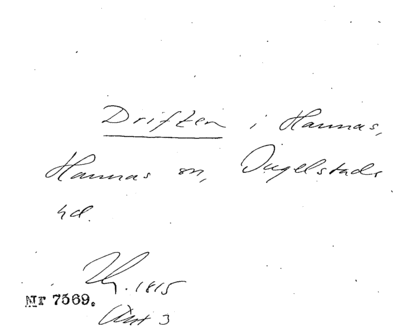 Driften i Hannas,
Hannas sn, Ingelstads
hd.
Uy. 1815
Nr 7569.
Akt 3